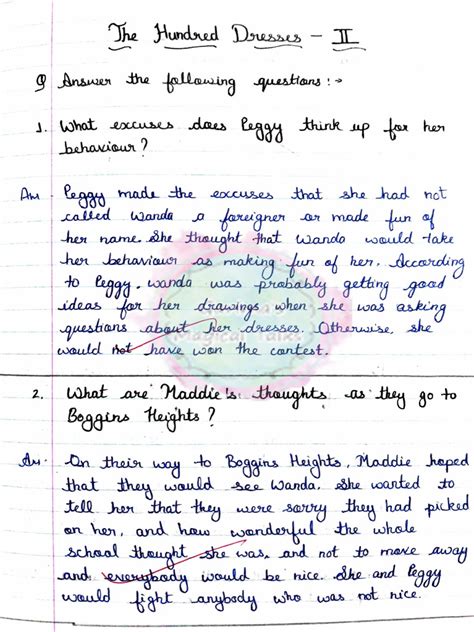 The Hundred Dresses - II
Q Answer the following questions :->
1. What excuses does Peggy think up for her
behaviour ?
Ans. Peggy made the excuses that she had not
called Wanda a foreigner or made fun of
her name. She thought that Wanda would take
her behaviour as making fun of her. According
to Peggy, wanda was probably getting good
ideas for her drawings when she was asking
questions about her dresses. Otherwise, she
would not have won the contest.
2. What are Maddie's thoughts as they go to
Boggins Heights ?
Ans. On their way to Boggins Heights, Maddie hoped
that they would see Wanda. She wanted to
tell her that they were sorry they had picked
on her, and how wonderful the whole
school thought she was, and not to move away
and everybody would be nice. She and Peggy
would fight anybody who was not nice.